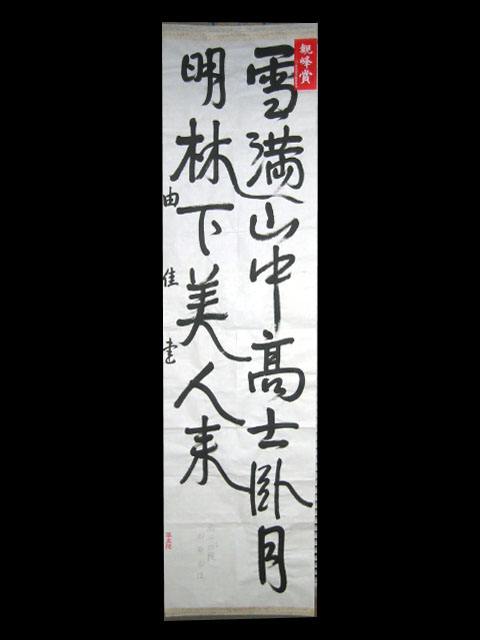 雪満山中高士臥月
明林下美人来
由佳書
観峰賞